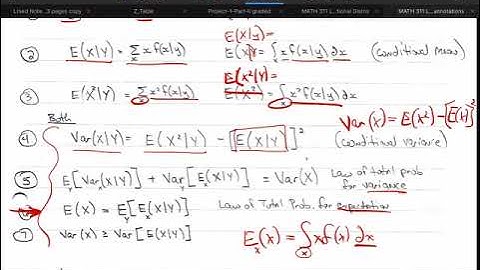 Lined Note...3 pages copy
Z_Table
Project-1-Part-II graded
MATH 311 L... tional Distris
MATH 311 L... annotations
E(X)=
② E(X|Y) = Σ x f(x|y)
x
E(X|Y) = ∫ x f(x|y) dx
x
(conditional Mean)
E(X²|Y)=
③ E(X²|Y) = Σ x² f(x|y)
x
E(X²) = ∫ x² f(x|y) dx
x
Var(X) = E(X²) - [E(X)]²
Both
④ Var(X|Y) = E(X²|Y) - [E(X|Y)]²
(conditional variance)
⑤ E[Var(X|Y)] + Var[E(X|Y)] = Var(X)
Y
Y
X
Law of total prob for variance
E(X) = E[E(X|Y)]
Y
X
Law of Total Prob. for expectation
⑦ Var(X) ≥ Var[E(X|Y)]
E(X) = ∫ x f(x) dx
X
x